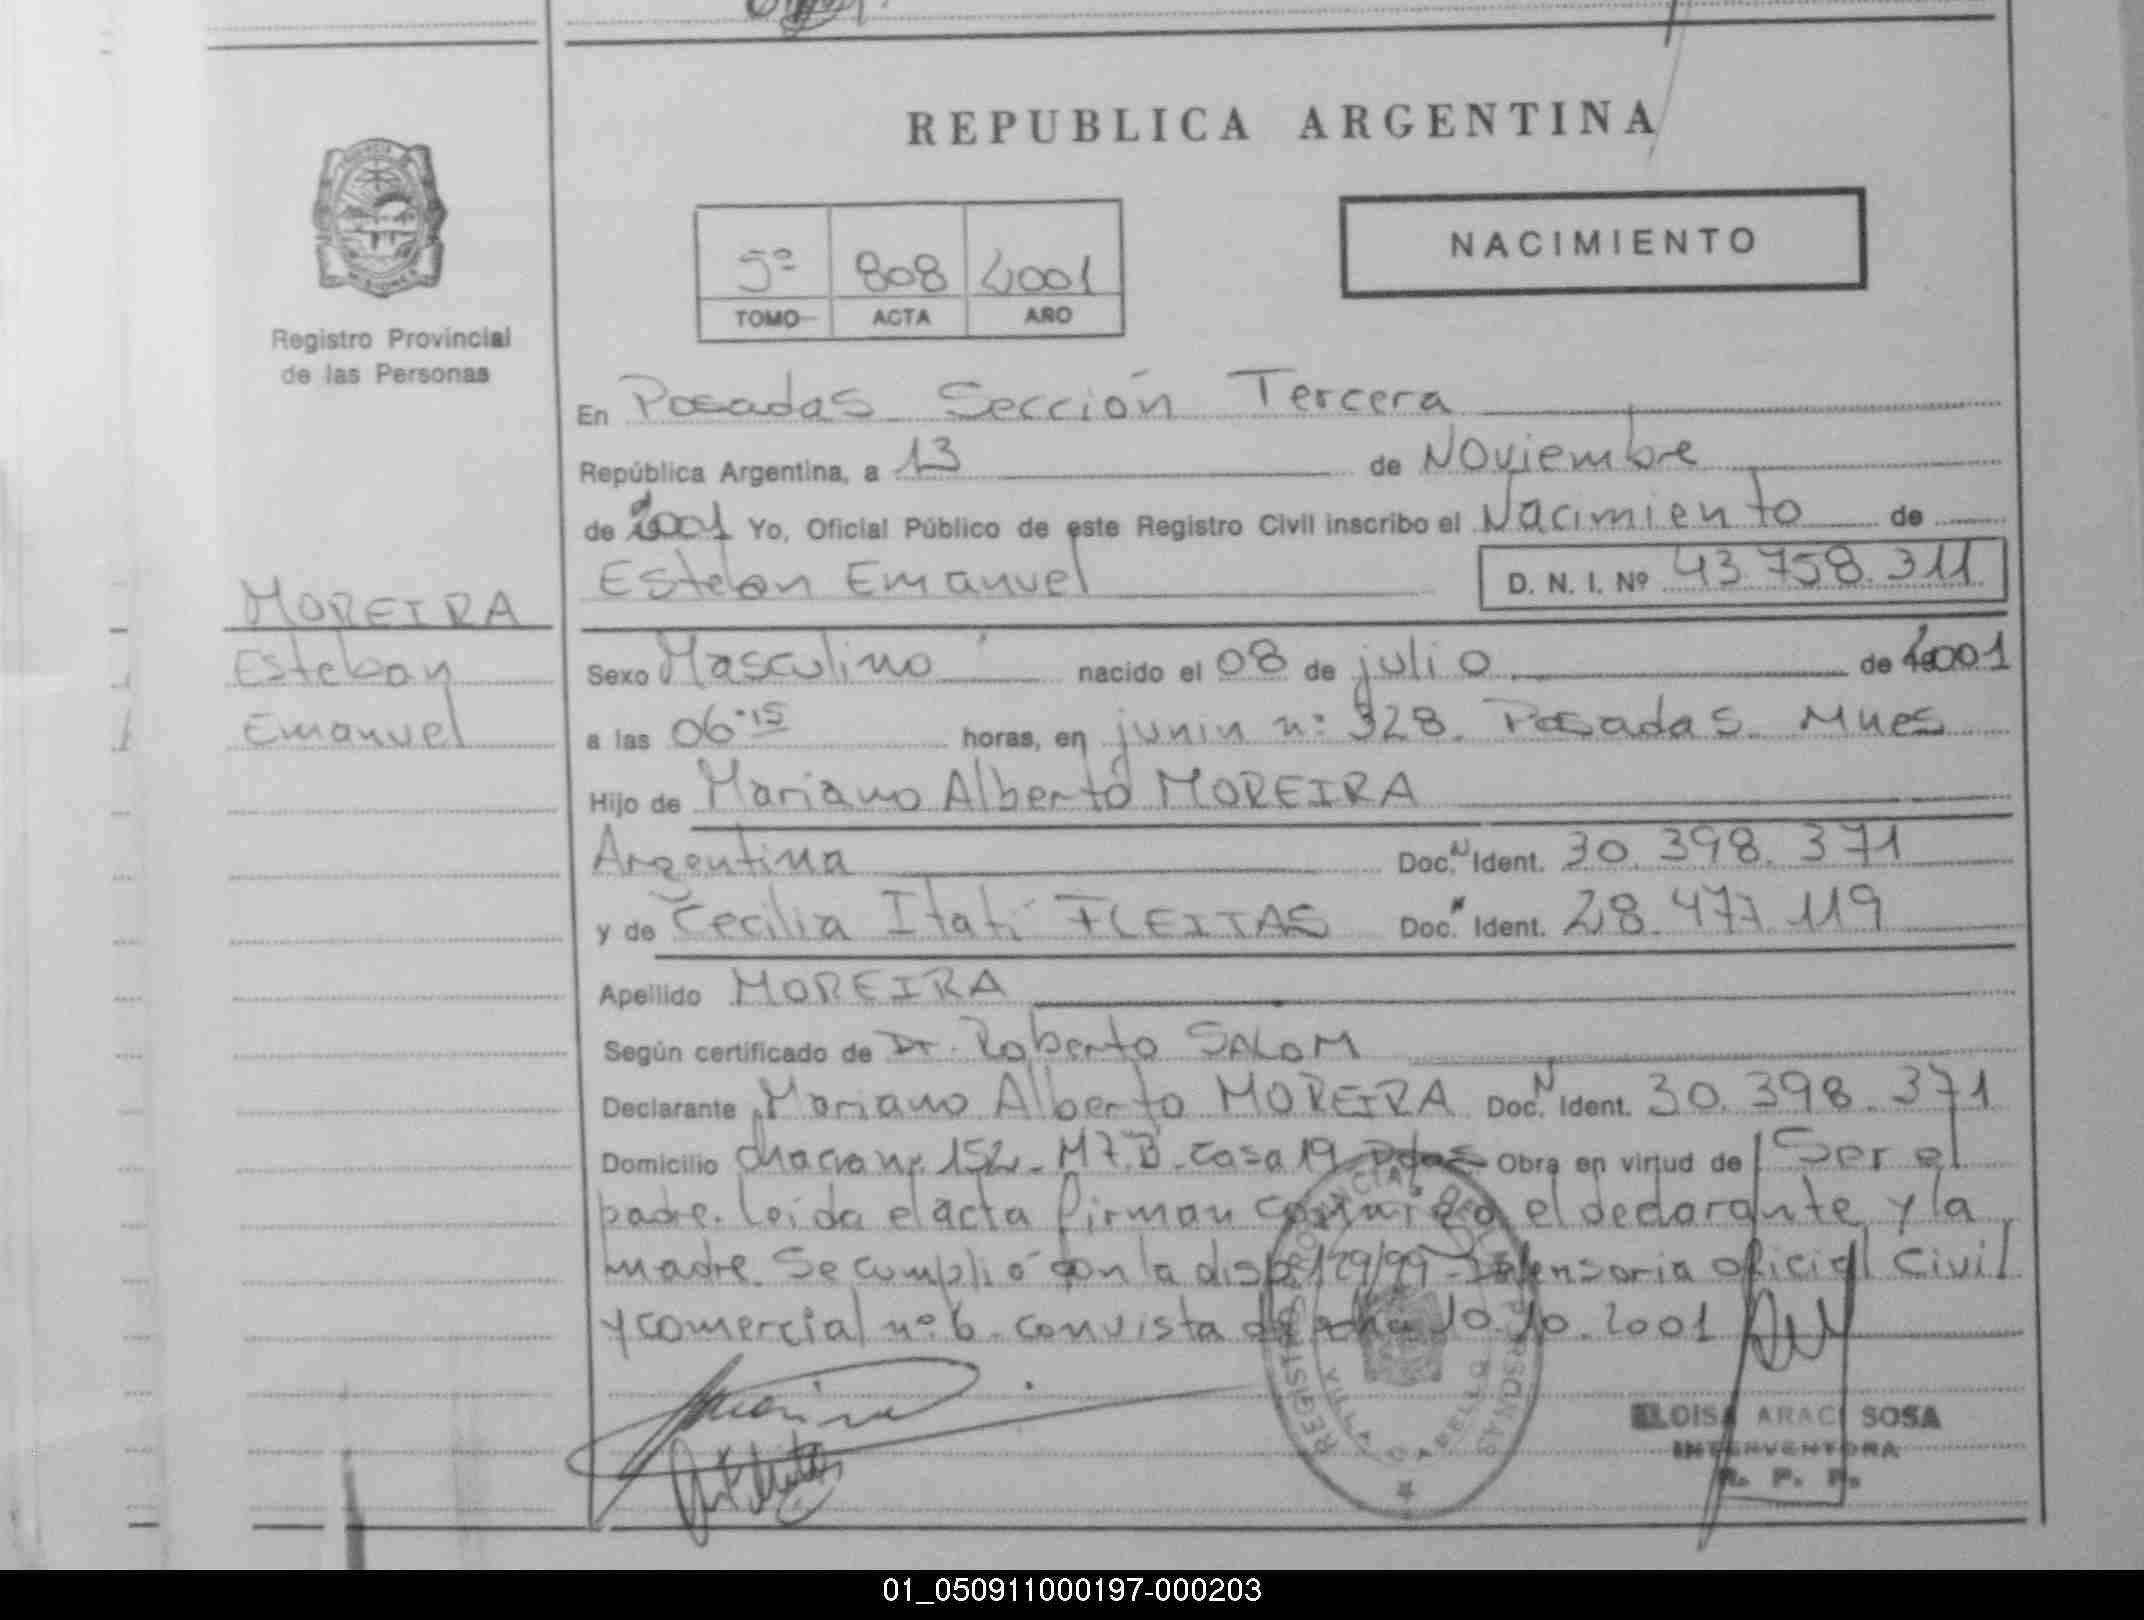 REPUBLICA ARGENTINA
NACIMIENTO
5º 808 2001
TOMO ACTA AÑO
Registro Provincial
de las Personas
En Posadas Sección Tercera
República Argentina, a 13 de Noviembre
de 2001 Yo, Oficial Público de este Registro Civil inscribo el Nacimiento de
Esteban Emanuel D. N. I. Nº 43.758.311
MOREIRA
Esteban
Emanuel
Sexo Masculino nacido el 08 de julio de 2001
a las 06.15 horas, en junin nº 328. Posadas. Mnes
Hijo de Mariano Alberto MOREIRA
Argentina Doc. N Ident. 30.398.371
y de Cecilia Itatí FLEITAS Doc. N Ident. 28.477.119
Apellido MOREIRA
Según certificado de Dr. Roberto SALOM
Declarante Mariano Alberto MOREIRA Doc. N Ident. 30.398.371
Domicilio chacra nº 152. M7.B. casa 19 Pdas Obra en virtud de Ser el
padre. Leida el acta firman conmigo el declarante y la
madre. Se cumplió con la disp. 129/99 Defensoria oficial Civil
y comercial nº 6. con vista de fecha 10.10.2001
REGISTRO PROVINCIAL DE LAS PERSONAS
VILLA CABELLO
ELOISA ARACI SOSA
INTERVENTORA
R. P. P.
01_050911000197-000203